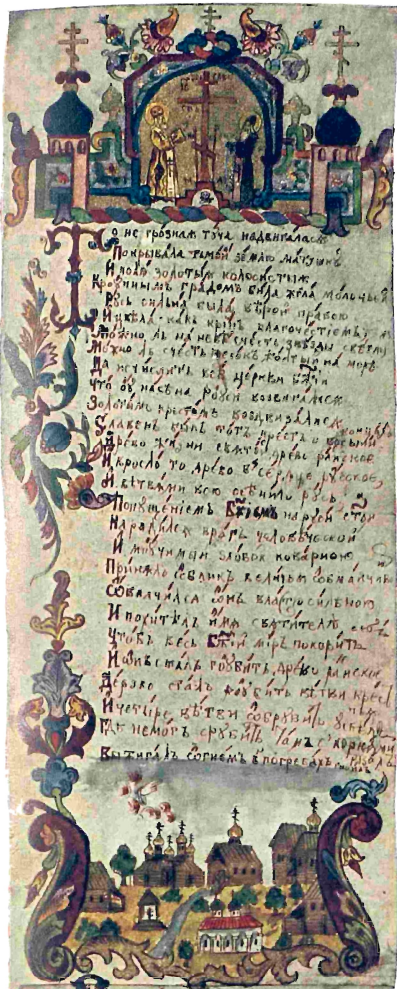 То не грозная туча надвигалася
Покрывала тьмой землю матушку
И поля золотыя колосистыя
Крупнымъ градомъ била жгла
Русь сильна была вѣрой правою
И цвѣла какъ кринъ благочестіемъ
ль на небѣ счесть звѣзды свѣтлы
Можно ль счесть песокъ жолтый на морѣ
Да исчислить всѣ церкви
Что бъ насъ на Руси воздвигалися
Золотымъ крестомъ
Славенъ былъ тотъ крестъ о восьми концахъ
Древо жизни свято древо райское
И вросло то древо въ сердце русское
И вѣтвями всю осенило русь
Попущеніемъ Бжіемъ на руси стои
Народился врагъ человѣческой
И злобою коварною
Принялъ обликъ
Облачился онъ властью сильною
И похитилъ имя святителя
Чтобъ весь Бжій міръ покорить
И онъ сталъ губить древо райское
Дерево сталъ рубить вѣтви
И четыре вѣтви обрубилъ
Гдѣ не могъ срубить тамъ с корнями
Выжигалъ огнемъ в погребахъ